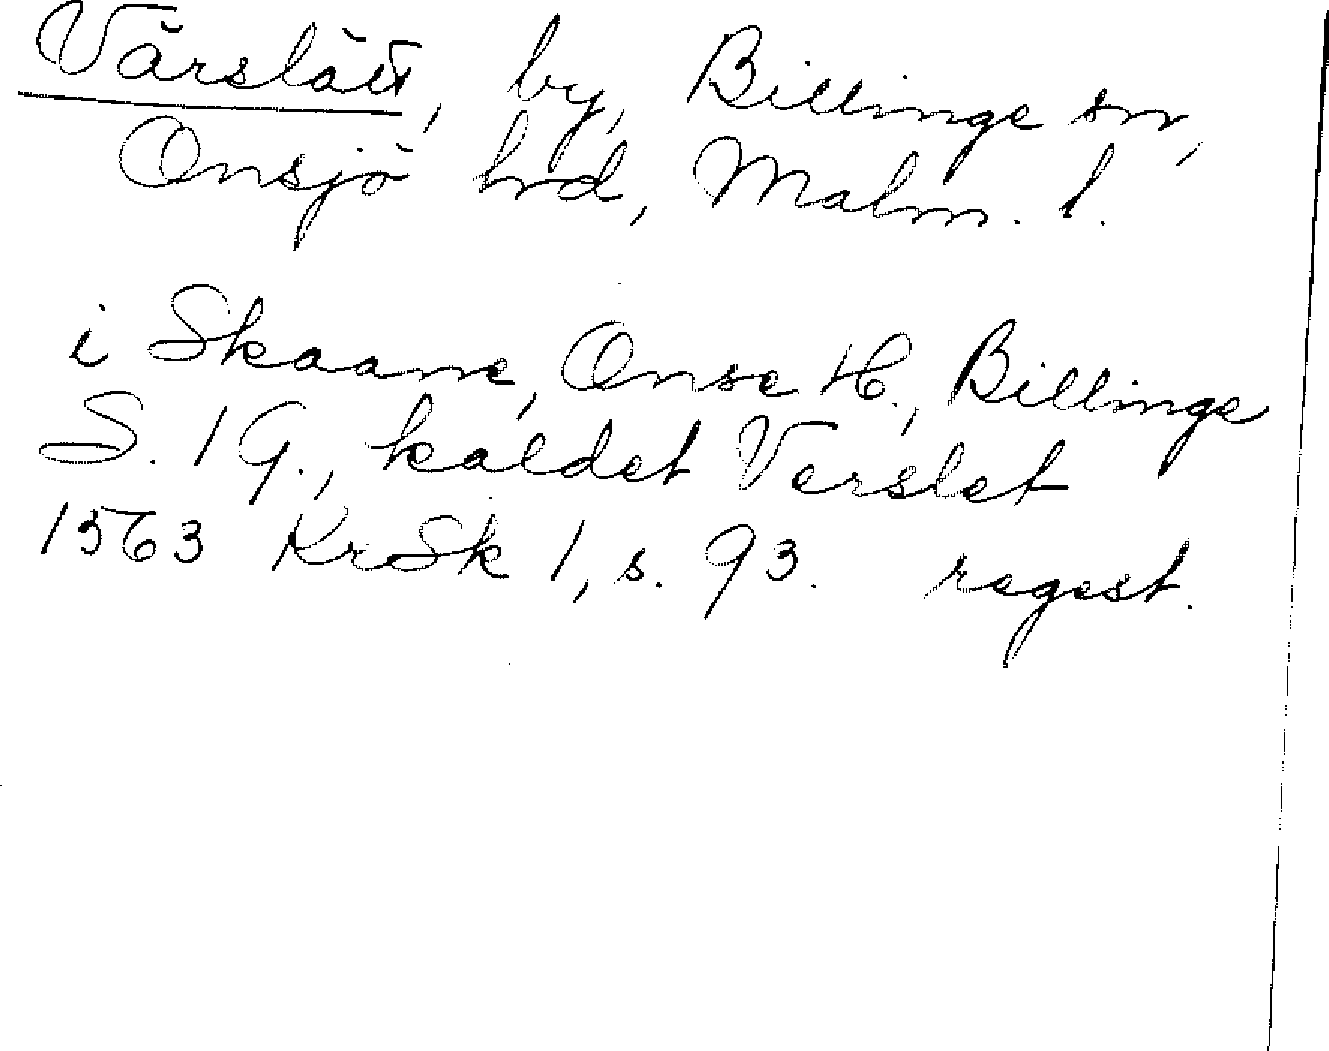 Värslätt, by, Billinge sn,
Onsjö hrd, Malm. l.
i Skaane, Onse H., Billinge
S. 1 G., kaldet Verslet
1563 KrSk 1, s. 93. regest.